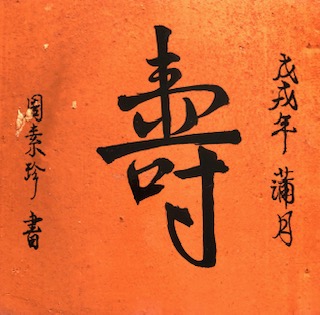 戊戌年 蒲月
壽
周素珍 書